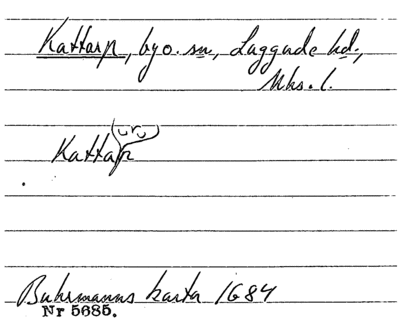 Kattarp, by o. sn, Luggude hd,
Mhs. l.
(ur)
Kattarp
Buhrmanns karta 1684
Nr 5685.